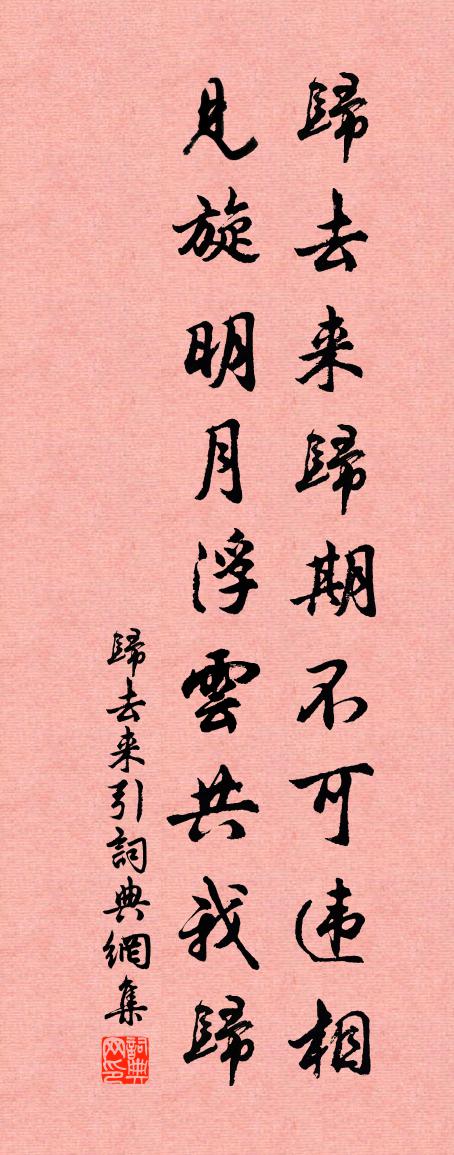 歸去来歸期不可违相
見旋明月浮雲共我歸
歸去来引詞典網集
詞典网印